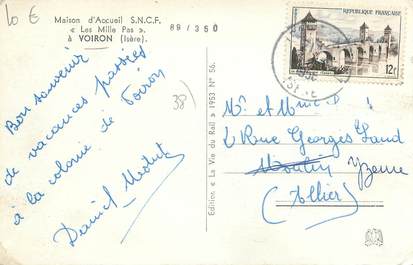 10 €
Maison d'Accueil S.N.C.F.
« Les Mille Pas »
à VOIRON (Isère).
89/350
REPUBLIQUE FRANÇAISE
12f
38)
Bon souvenir
de vacances passées
à la colonie de Voiron
Daniel
Edition « La Vie du Rail » 1953 N° 56.
Mr et Mme D
2 Rue Georges Sand
Moulin Yzeure
(Allier)